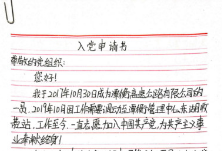 入党申请书
敬爱的党组织:
您好!
我于2017年10月30日成为渭南高速公路有限公司的
一员,2019年10月因工作需要调动至渭南管理中心东站收
费站,工作至今,一直志愿加入中国共产党,为共产主义事
业奉献终身!